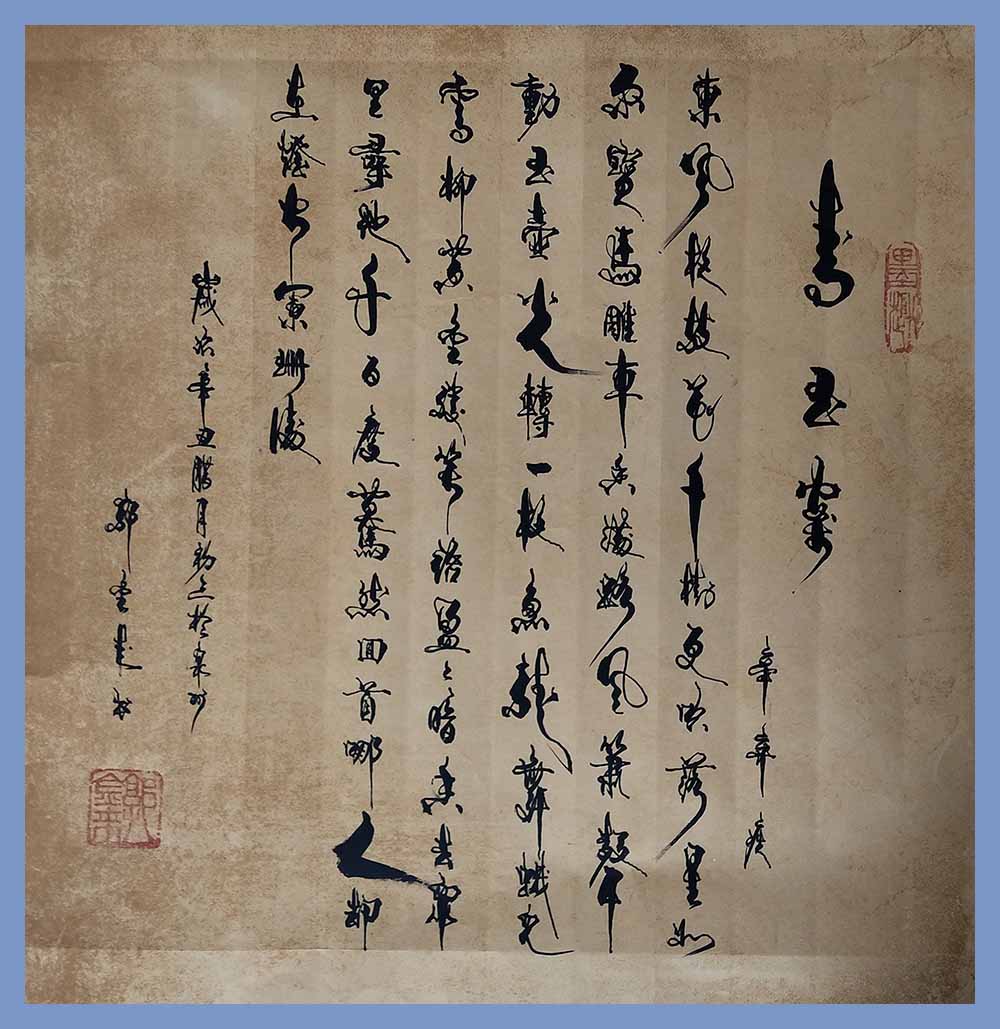 青玉案
辛弃疾
東風夜放花千樹更吹落星如
雨寶馬雕車香滿路鳳簫聲
動玉壺光轉一夜魚龍舞蛾兒
雪柳黃金縷笑語盈々暗香去眾
里尋他千百度驀然回首哪人卻
在燈火闌珊處
歲次辛丑臘月初於泉州